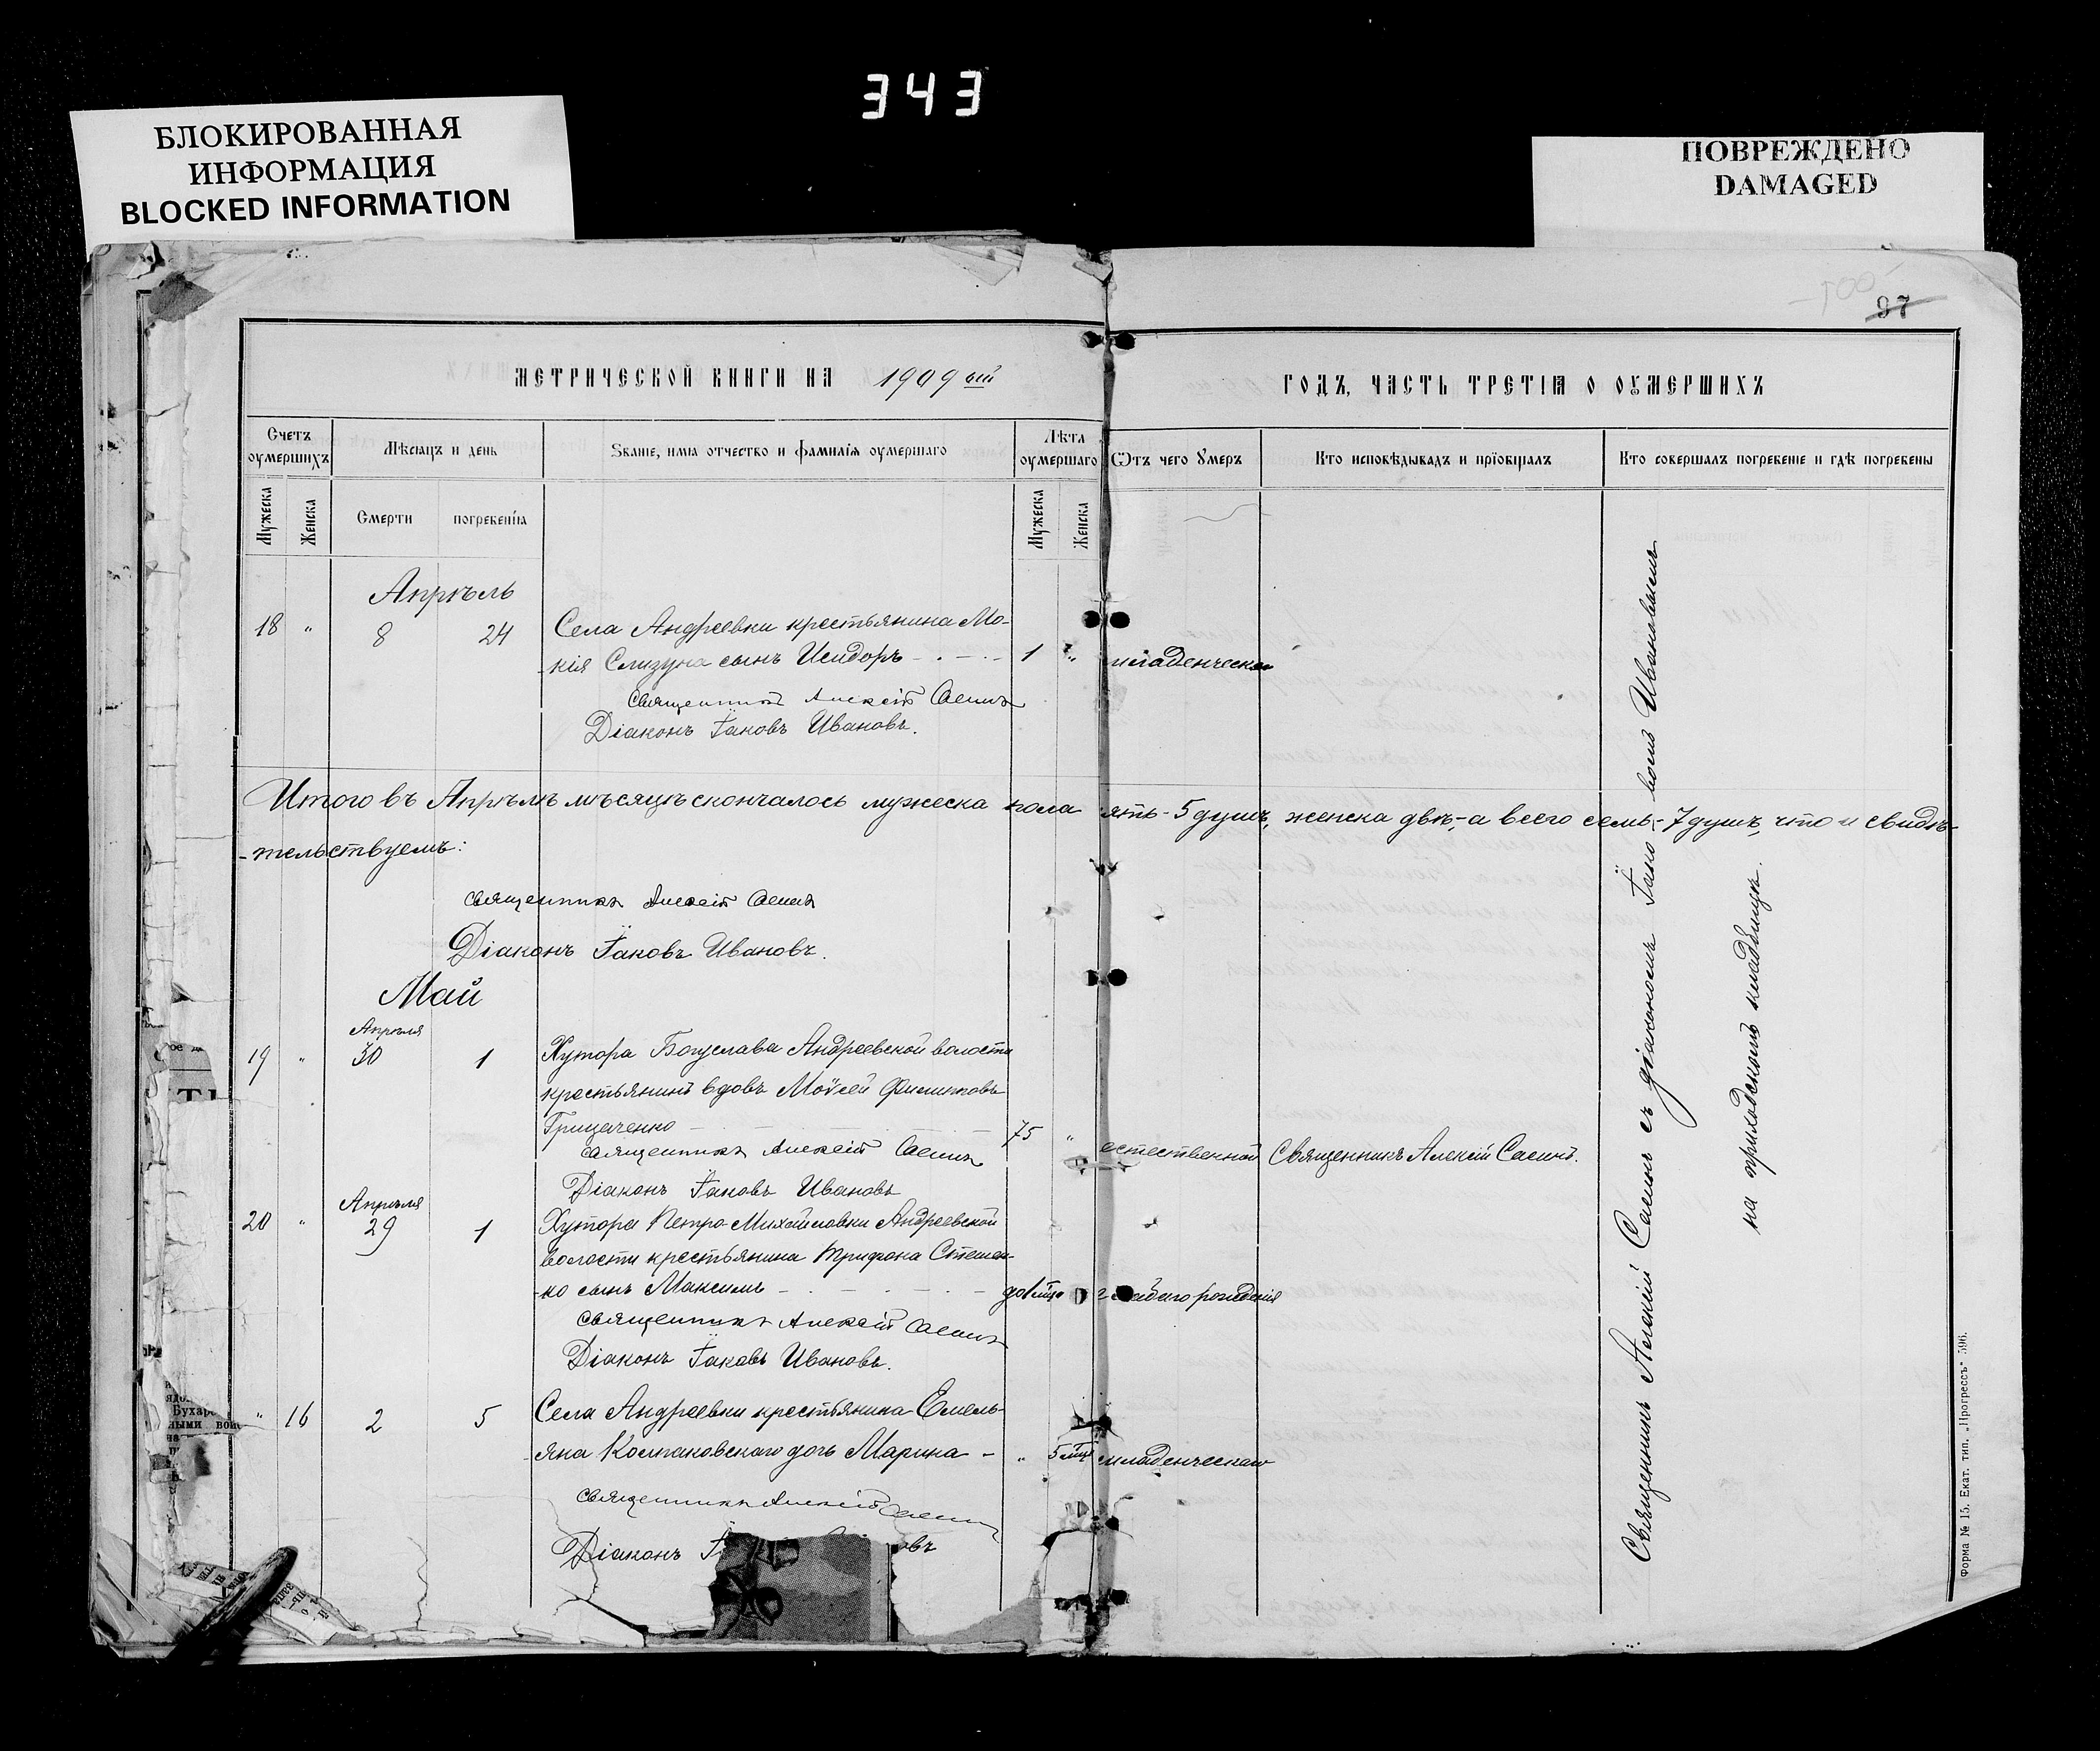 343
БЛОКИРОВАННАЯ
ИНФОРМАЦИЯ
BLOCKED INFORMATION
ПОВРЕЖДЕНО
DAMAGED
100
97
МЕТРИЧЕСКОЙ КНИГИ НА 1909 ый
ГОДЪ, ЧАСТЬ ТРЕТІѦ О ОУМЕРШИХЪ
Счетъ оумершихъ
Мѣсяцъ и день
Званіе, имя отчество и фамилія оумершаго
Лѣта оумершаго
Ѿтъ чего умеръ
Кто исповѣдывалъ и пріобщалъ
Кто совершалъ погребеніе и гдѣ погребены
Мужеска
Женска
Смерти
погребенія
Мужеска
Женска
Апрѣль
18 " 8 24 Села Андреевки крестьянина Мо-
-кія Слизуна сынъ Исидоръ 1 " младенческой
священникъ Алексій Саенъ
Діаконъ Іаковъ Ивановъ.
Итого въ Апрѣлѣ мѣсяцѣ скончалось мужеска пола пять - 5 душъ, женска двѣ, а всего семь - 7 душъ, что и свидѣ-
-тельствуемъ:
священникъ Алексій Саенъ
Діаконъ Іаковъ Ивановъ.
Май
Апрѣля
19 " 30 1 Хутора Богуслава Андреевской волости
крестьянинъ вдовъ Моѵсей Филипповъ
Грицаченко 75 "
священникъ Алексій Саенъ
естественной Священникъ Алексій Саенъ.
Діаконъ Іаковъ Ивановъ
Апрѣля
20 " 29 1 Хутора Петро-Михайловки Андреевской
волости крестьянина Трифона Стешен-
-ко сынъ Максимъ рожденія
священникъ Алексій Саенъ
Діаконъ Іаковъ Ивановъ.
" 16 2 5 Села Андреевки крестьянина Емель-
яна Колпаковскаго дочь Марина " 5 мцъ младенческаго
священникъ Алексій Саенъ
Діаконъ І овъ
Священникъ Алексій Саенъ съ діакономъ Іаковомъ Ивановымъ
на приходскомъ кладбищѣ.
Форма № 15. Екат. тип. „Прогрессъ" 596.